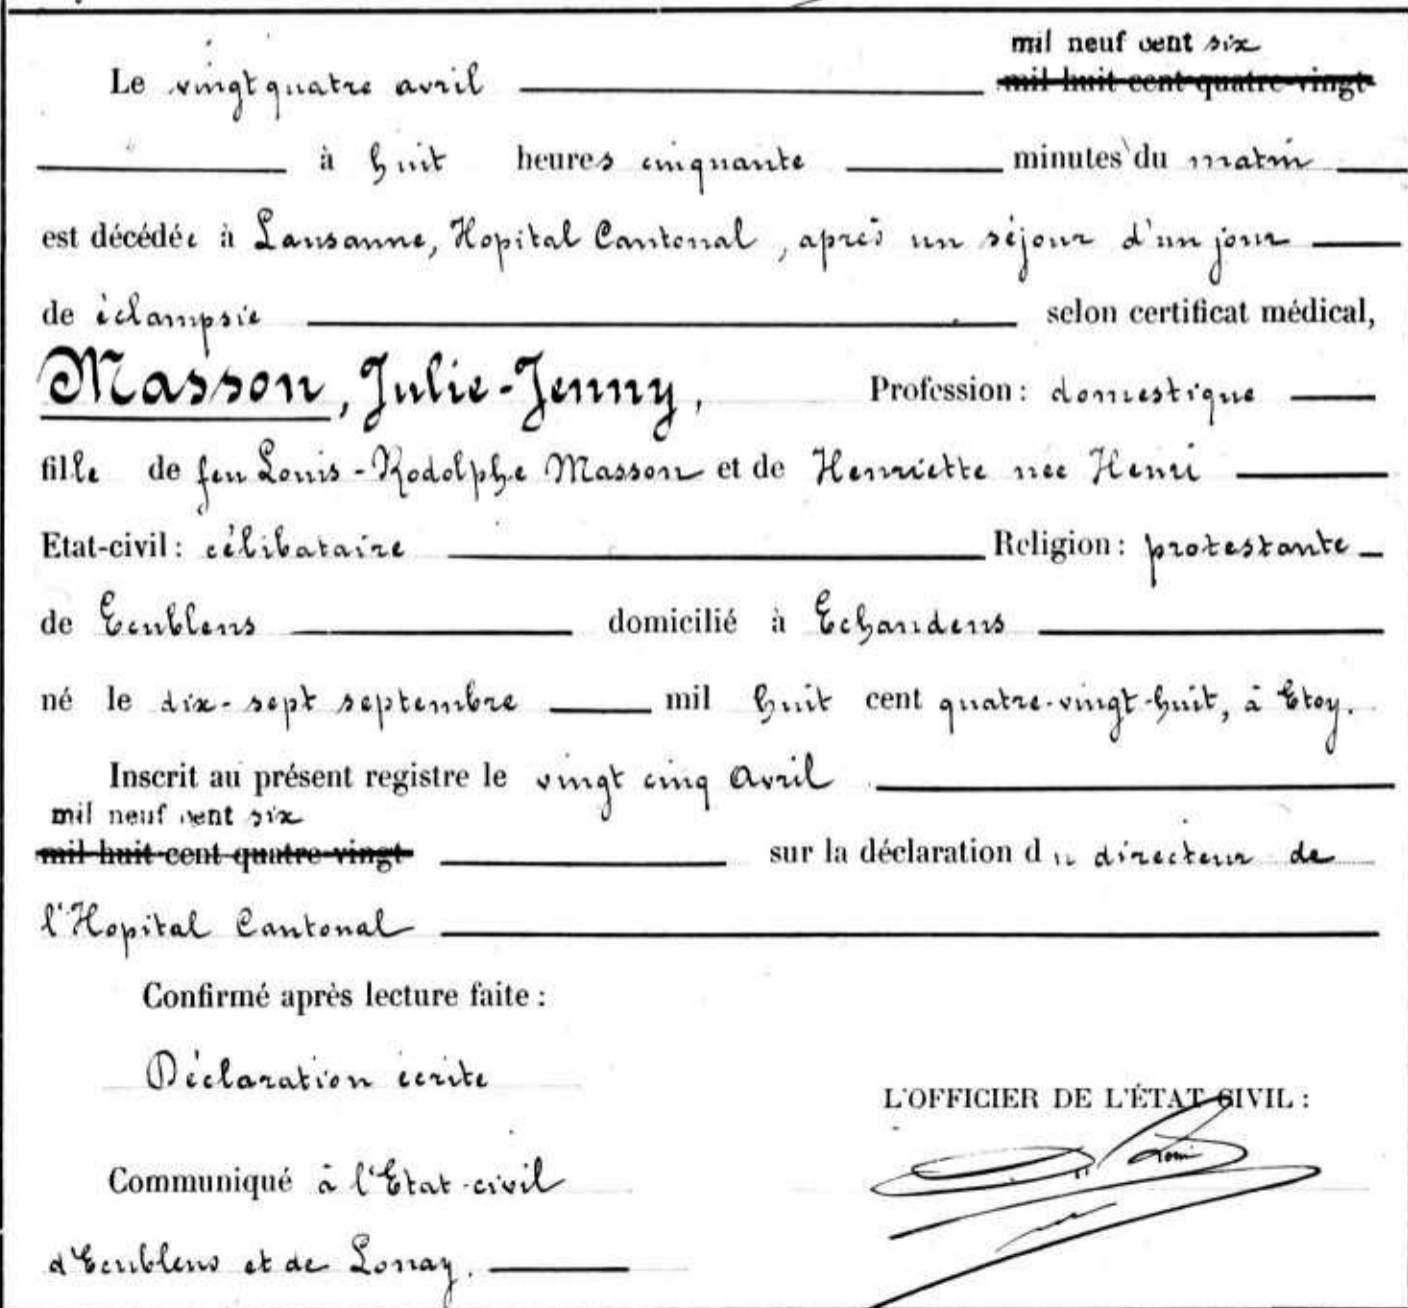 mil neuf cent six
Le vingt quatre avril mil huit cent quatre-vingt
à huit heures cinquante minutes du matin
est décédée à Lausanne, Hopital Cantonal, après un séjour d'un jour
de éclampsie selon certificat médical,
Masson, Julie-Jenny, Profession : domestique
fille de feu Louis-Rodolphe Masson et de Henriette née Henri
Etat-civil : célibataire Religion : protestante
de Ecublens domicilié à Echandens
né le dix-sept septembre mil huit cent quatre-vingt-huit, à Etoy.
Inscrit au présent registre le vingt cinq Avril
mil neuf cent six
mil huit cent quatre-vingt sur la déclaration du directeur de
l'Hopital Cantonal
Confirmé après lecture faite :
Déclaration écrite
L'OFFICIER DE L'ÉTAT CIVIL :
Communiqué à l'Etat-civil
d'Ecublens et de Lonay.